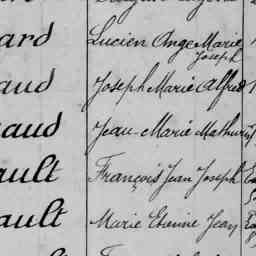 ard Lucien Ange Marie
Joseph
aud Joseph Marie Alfred
aud Jean-Marie Mathurin
ault François Jean Joseph
ault Marie Etienne Jean